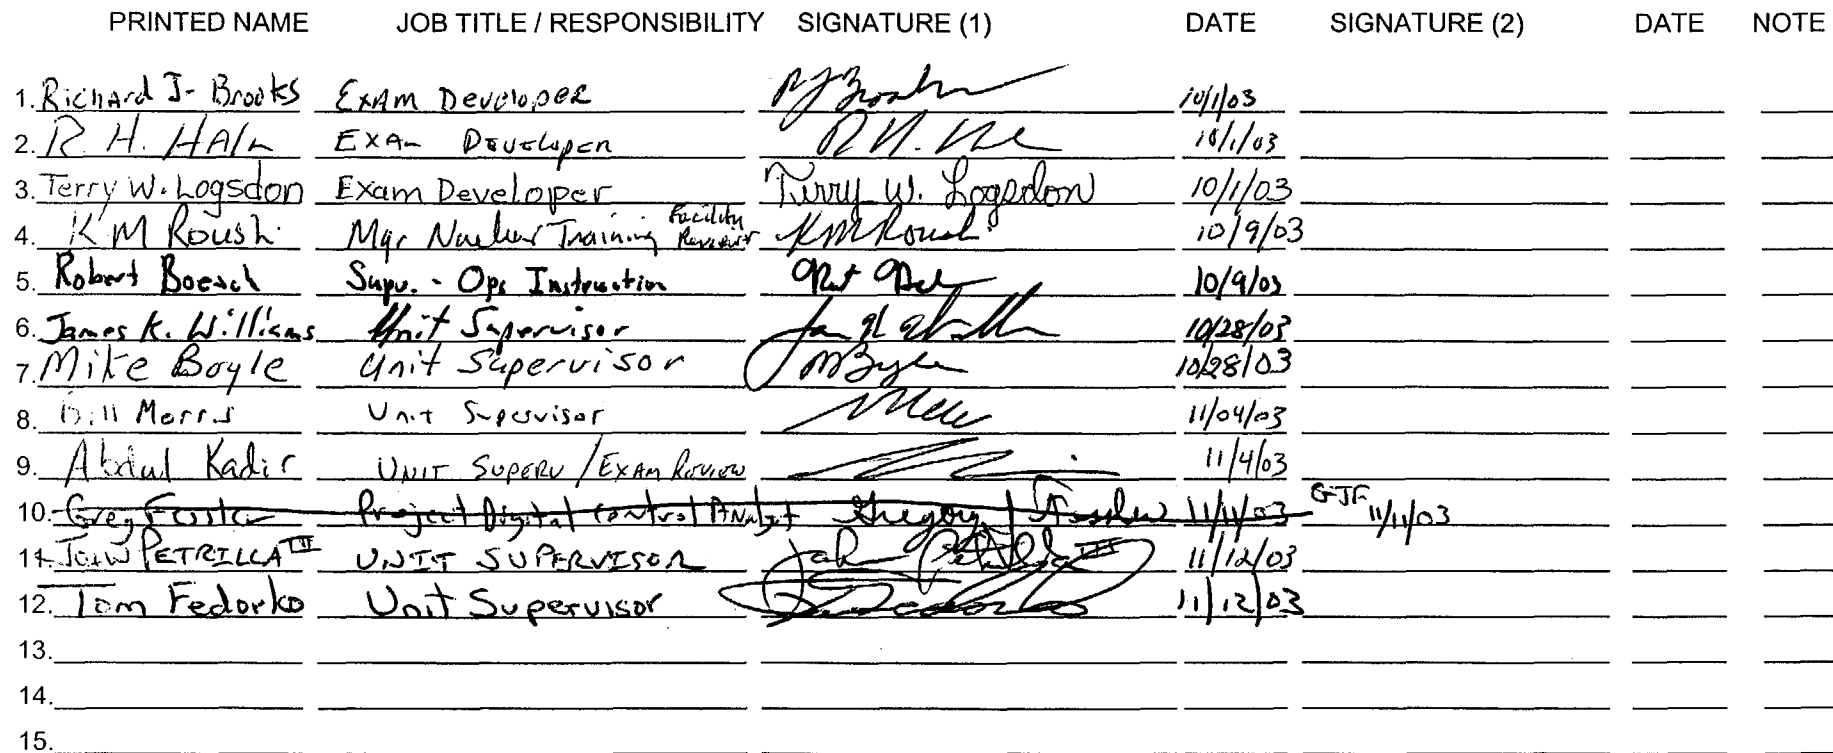 PRINTED NAME JOB TITLE / RESPONSIBILITY SIGNATURE (1) DATE SIGNATURE (2) DATE NOTE
1. Richard J. Brooks Exam Developer RJBrooks 10/1/03
2. R. H. Exam Developer R H. 10/1/03
3. Terry W. Logsdon Exam Developer Terry W. Logsdon 10/1/03
4. K M Roush Mgr Nuclear Training Facility Reviewer KMRoush 10/9/03
5. Robert Boesch Supv. - Ops Instruction 10/9/03
6. James K. Williams Unit Supervisor 10/28/03
7. Mike Boyle Unit Supervisor MBoyle 10/28/03
8. Bill Morris Unit Supervisor 11/04/03
9. Abdul Kadir UNIT SUPERV / EXAM REVIEW 11/4/03
10. Greg Project Digital Control Analyst Gregory J 11/11/03 GJF 11/11/03
11. John PETRILLA III UNIT SUPERVISOR John Petrilla III 11/12/03
12. Tom Fedorko Unit Supervisor 11/12/03
13.
14.
15.